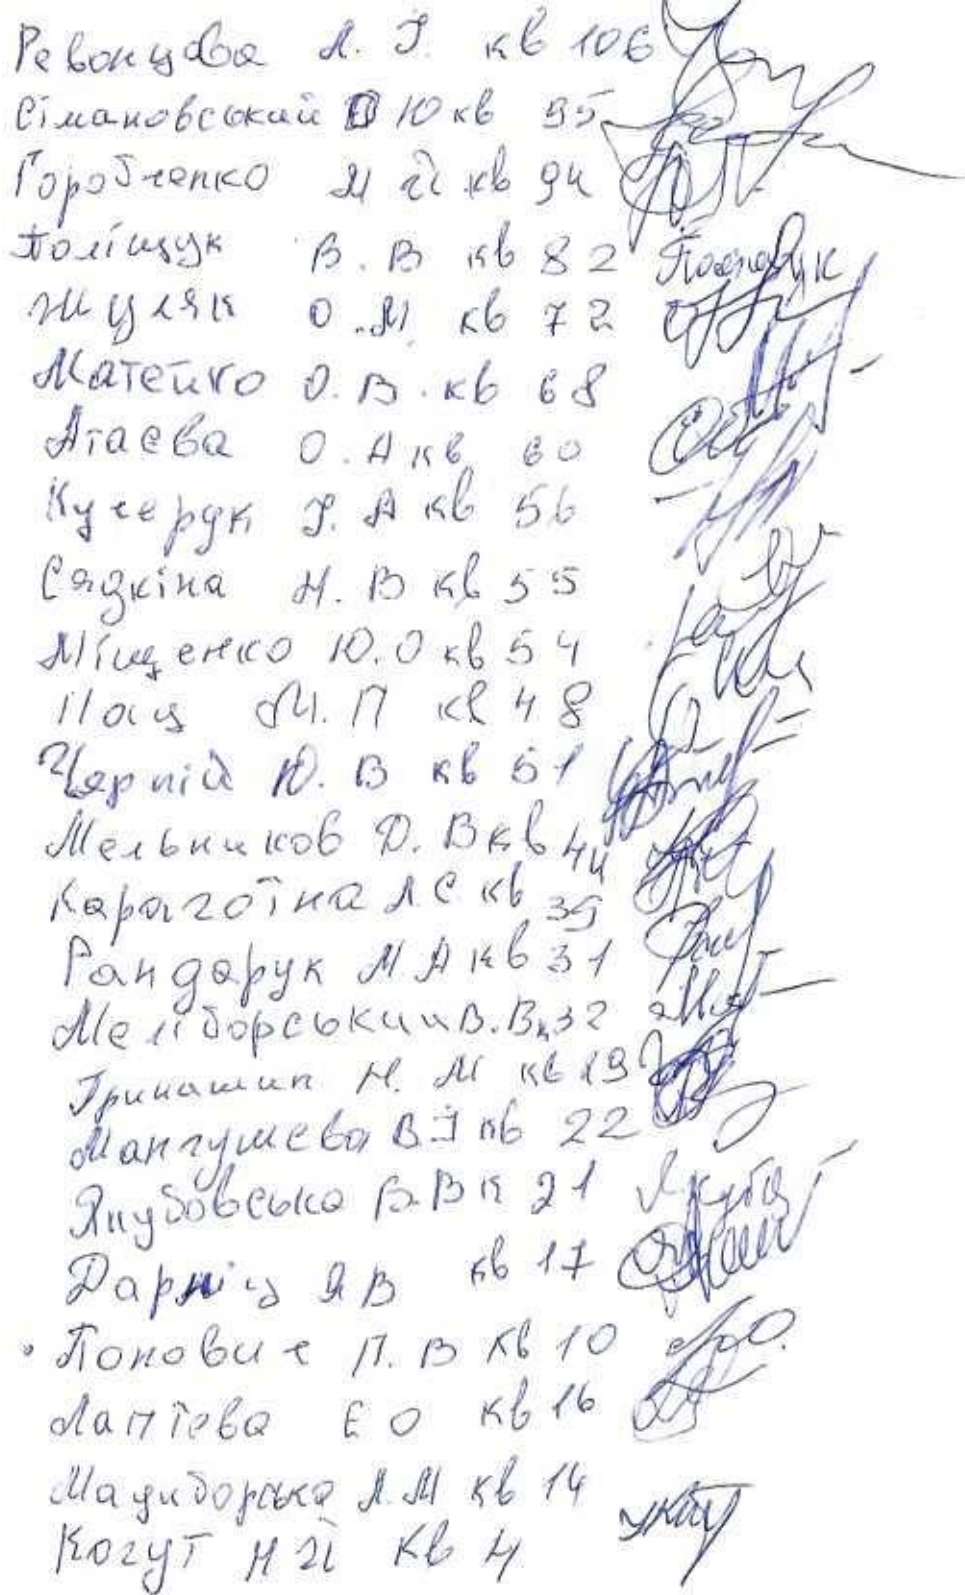 Ревонцова Л. І. кв 106
Сімановський О Ю кв 95
Горобченко М Й кв 94
Поліщук В. В кв 82
Жуляк О. М. кв 72
Матейко О. В. кв 68
Атаєва О. А кв 60
Кучерук І. А кв 56
Сядкіна Н. В кв 55
Міщенко Ю. О кв 54
Пац М. П кв 48
Чорній Ю. В кв 51
Мельников Д. В кв 44
Карагоїна Л С кв 39
Рандарук М А кв 31
В. В 32
Н. М кв 19
Мангушева В І кв 22
Якубовська В. В к 21
Дарміц Я В кв 17
Попович П. В кв 10
Лаптєва Е О кв 16
Л. М кв 14
Когут Н Й кв 4